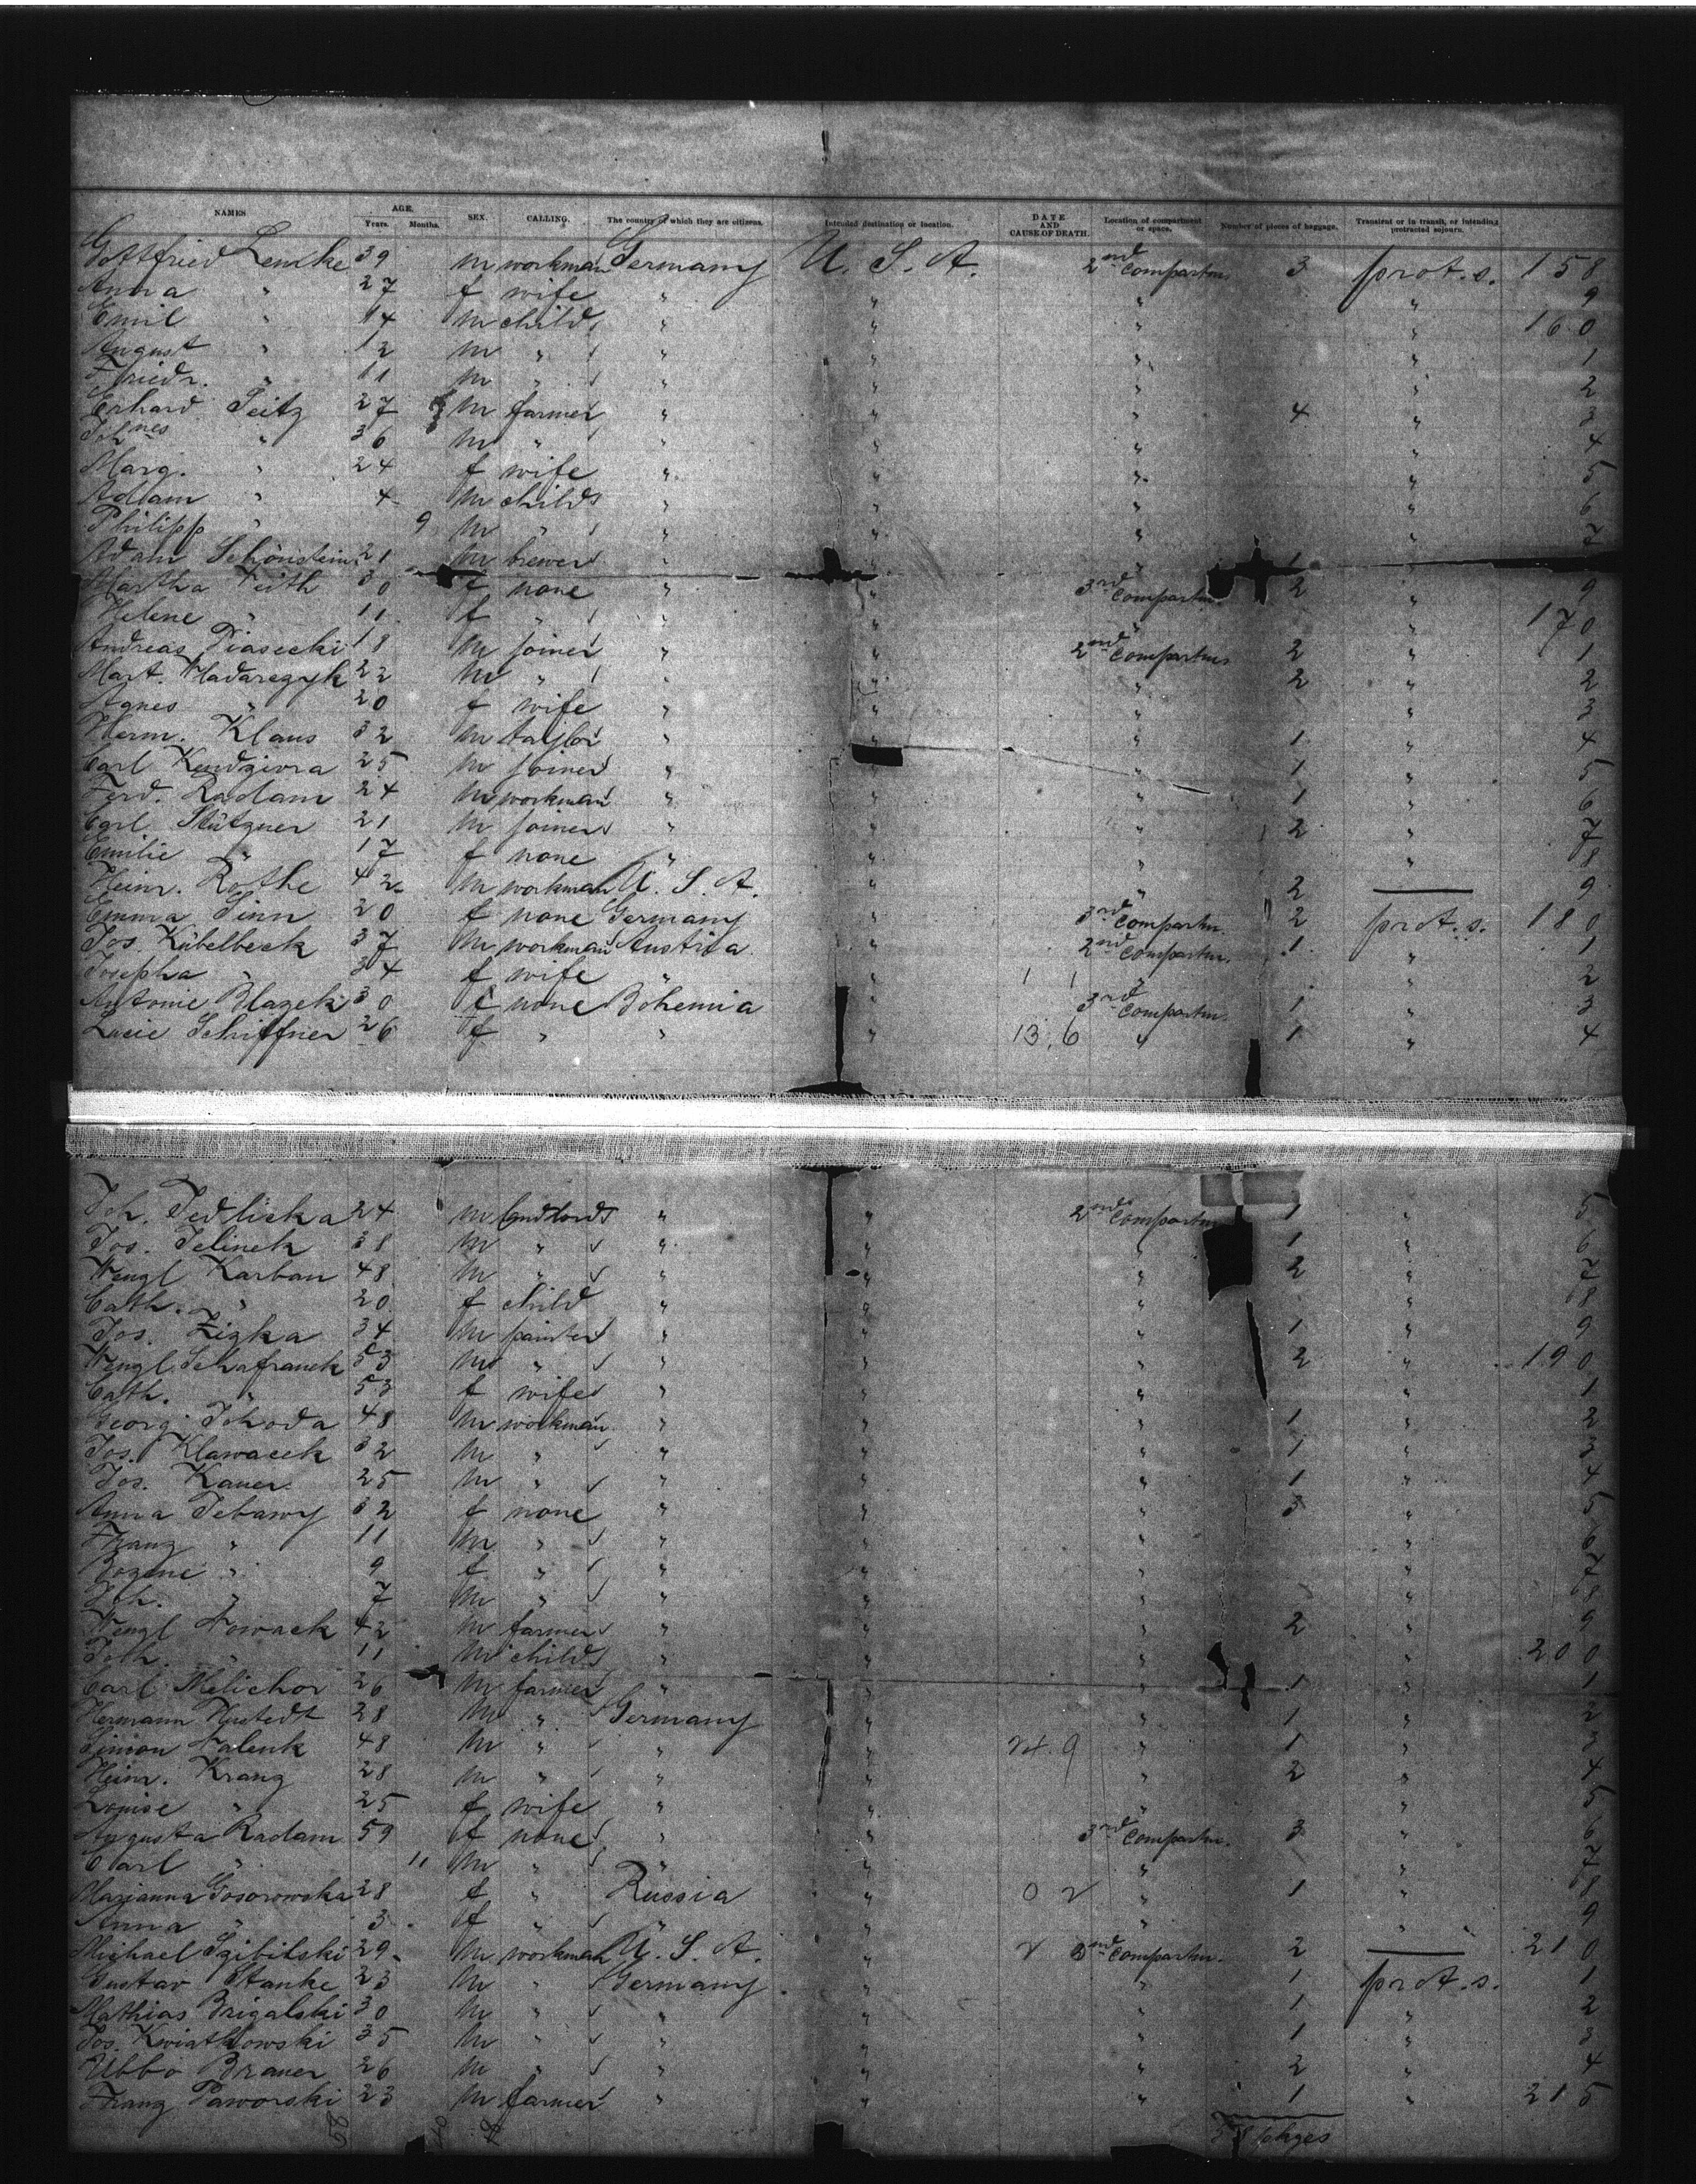 NAMES AGE. Years. Months. SEX. CALLING. The country of which they are citizens. Intended destination or location. DATE AND CAUSE OF DEATH. Location of compartment or space. Number of pieces of baggage. Transient or in transit, or intending protracted sojourn.
Gottfried Lemke 39 m workman Germany U. S. A. 2nd compartm. 3 prot. s. 158
Anna " 27 f wife " " " " 9
Emil " 14 m child " " " " 160
August " 12 m " " " " " 1
Friedr. " 11 m " " " " " 2
Erhard Seitz 27 m farmer " " " 4 " 3
Johnes " 36 m " " " " " 4
Marg. " 24 f wife " " " " 5
Adam " 4 m child " " " " 6
Philipp " 9 m " " " " " 7
Adam Schönstein 21 m brewer " " " 1 "
Martha Veith 30 f none " " 3rd compartm. 2 " 9
Helene " 11 f " " " " " 170
Andreas Piasecki 18 m joiner " " 2nd compartm. 2 " 1
Mart. Wladarczyk 22 m " " " " 2 " 2
Agnes " 20 f wife " " " " 3
Herm. Klaus 32 m taylor " " " 1 " 4
Carl Kendziora 25 m joiner " " " 1 " 5
Ferd. Radam 24 m workman " " " 1 " 6
Carl Stützner 21 m joiner " " " 2 " 7
Emilie " 17 f none " " " " 8
Heinr. Rothe 42 m workman U. S. A. " " 2 — 9
Emma Sinn 20 f none Germany " 3rd compartm. 2 prot. s. 180
Jos. Kübelbeck 37 m workman Austria " 2nd compartm. 1 " 1
Josepha " 34 f wife " " 1 1 " " 2
Antonie Blazek 30 f none Bohemia " 3rd compartm. 1 " 3
Lucie Schiffner 26 f " " " 13,6 " 1 " 4
Joh. Jedlicka 24 m landlord " " 2nd compartm. 1 " 5
Jos. Jelinek 38 m " " " " 1 " 6
Wenzl Karban 48 m " " " " 2 " 7
Cath. " 20 f child " " " " 8
Jos. Zizka 34 m painter " " " 1 " 9
Wenzl Schafranek 53 m " " " " 2 " 190
Cath. " 53 f wife " " " " 1
Georg Schoda 48 m workman " " " 1 " 2
Jos. Klawacek 32 m " " " " 1 " 3
Jos. Kauer 25 m " " " " 1 " 4
Anna Tebawy 32 f none " " " 3 " 5
Franz " 11 m " " " " " 6
Bozene " 9 f " " " " " 7
Joh. " 7 m " " " " " 8
Wenzl Nowack 42 m farmer " " " 2 " 9
Joh. " 11 m child " " " " 200
Carl Melichor 26 m farmer " " " 1 " 1
Hermann Hustedt 28 m " Germany " " 1 " 2
Simon Valenk 48 m " " " 24 9 " 1 " 3
Heinr. Kranz 28 m " " " " 2 " 4
Louise " 25 f wife " " " " 5
Augusta Radam 59 f none " " 3rd compartm. 3 " 6
Carl " 11 m " " " " " 7
Marianna Gosorowska 28 f " Russia " 0 2 " 1 " 8
Anna " 3 f " " " " " 9
Michael Szibilski 29 m workman U. S. A. " 2nd compartm. 2 — 210
Gustav Stanke 23 m " Germany " " 1 prot. s. 1
Mathias Brigalski 30 m " " " " 1 " 2
Jos. Kwiatkowski 35 m " " " " 1 " 3
Ubbo Brauer 26 m " " " " 2 " 4
Franz Paworski 23 m farmer " " " 1 " 215